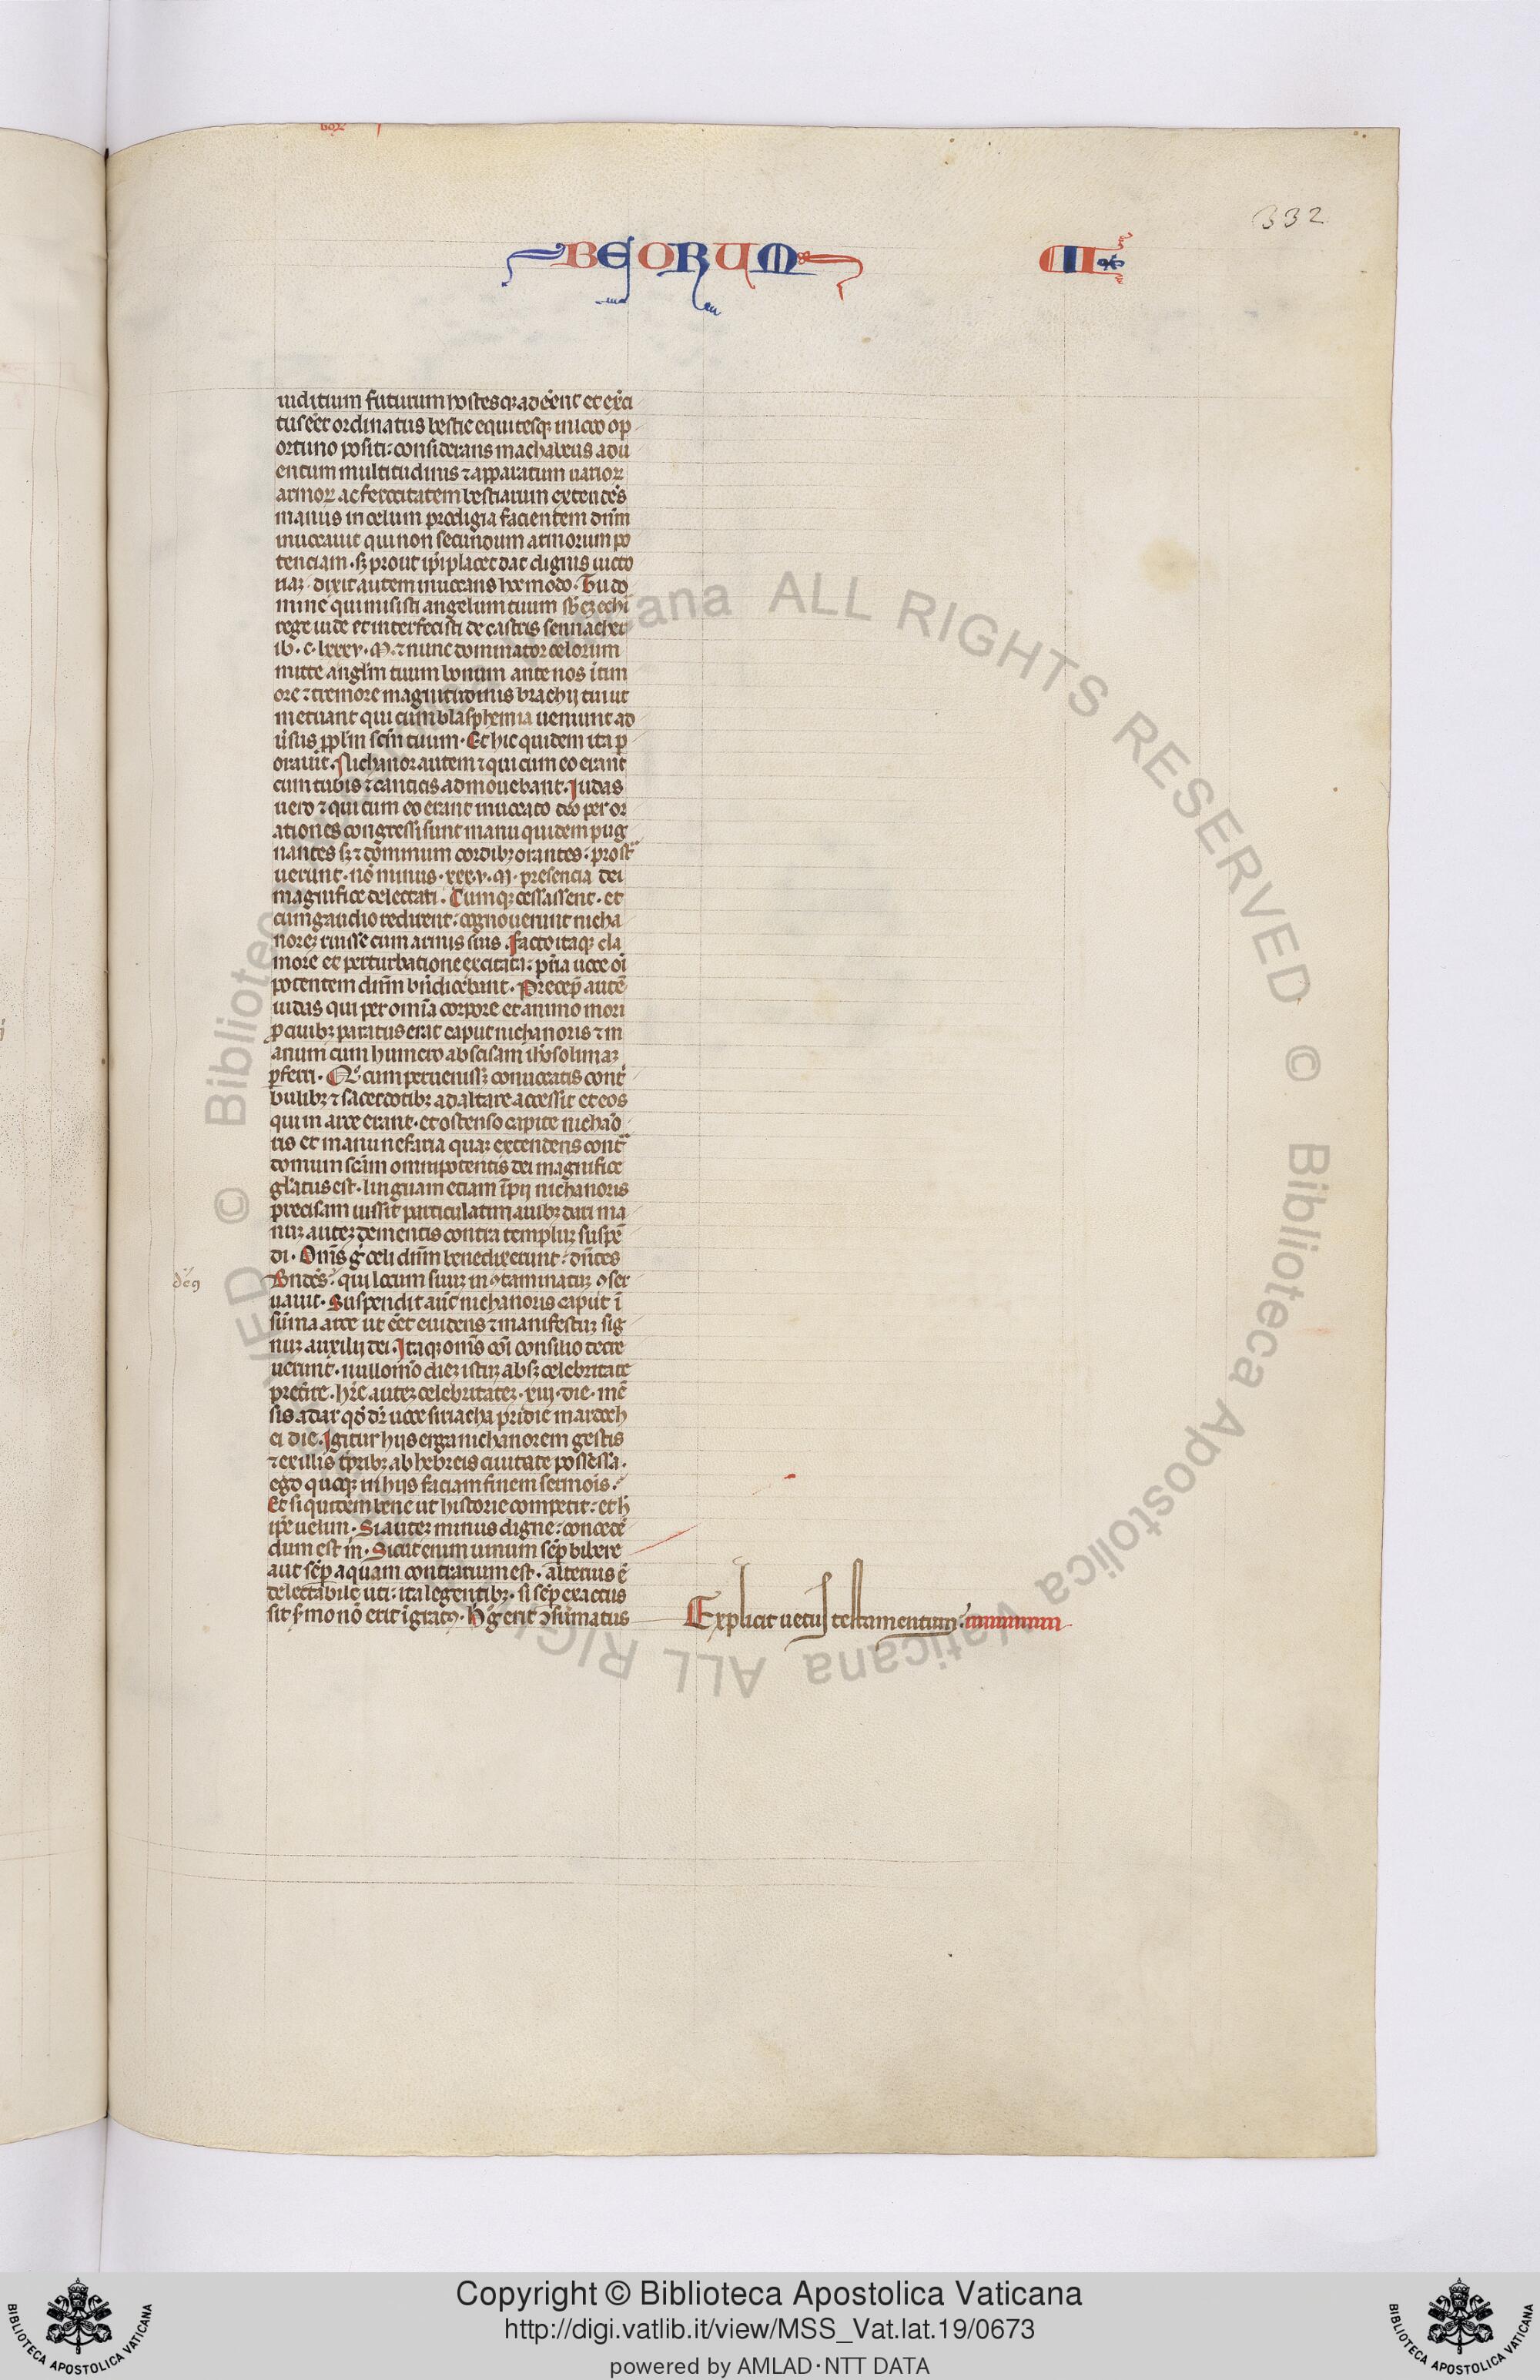 332
BEORUM II
iuditium futurum hostesqꝫ adeẽnt et exẽci
tus eẽt ordinatus bestie equitesqꝫ in loco op
ortuno positi : considerans machabeus adu
entum multitudinis ⁊ apparatum uarioꝝ
armoꝝ ac ferocitatem bestiarum extendẽs
manus in celum prodigia facientem dñm
inuocauit qui non secundum armorum po
tenciam · sꝫ prout ip̃i placet dat dignis uicto
riaꝫ · dixit autem inuocans hoc modo · Tu do
mine qui misisti angelum tuum sb̃ ezechi
rege iude et interfecisti de castris sennacher
ib · c · lxxxv · M · ⁊ nunc dominator celorum
mitte angl̃m tuum bonum ante nos ĩ tim
ore ⁊ tremore magnitudinis brachij tui ut
metuant qui cum blasphemia ueniunt ad
ũsus pp̃lm scm̃ tuum · Et hic quidem ita ꝑ
orauit · Nichanor autem ⁊ qui cum eo erant
cum tubis ⁊ canticis admouebant · Iudas
uero ⁊ qui cum eo erant inuocato deo per or
ationes congressi sunt manu quidem pug
nantes sꝫ ⁊ dominum cordibꝫ orantes : prostᵃ
uerunt · nõ minus · xxx.v · M · presencia dei
magnifice delectati · Cumqꝫ cessassent · et
cum gaudio redirent : cognouerunt nicha
noreꝫ ruisse cum armis suis · Facto itaqꝫ cla
more et perturbatione excitata : pr̃ia uoce oĩ
potentem dñm bñdicebant · Precep̃ autẽ
iudas qui per omĩa corpore et animo mori
ꝓ ciuibꝫ paratus erat caput nichanoris ⁊ m
anum cum humero abscisam ih̃osolimaꝫ
ꝑferri · Q° cum peruenissꝫ conuocatis contⁱ
bulibꝫ ⁊ sacerdotibꝫ ad altare accessit et eos
qui in arce erant · et ostenso capite nichão
ris et manu nefaria quaꝫ extendens contᵃ
domum scãm omnipotentis dei magnifice
gl̃atus est · linguam etiam ĩpij nichanoris
precisam iussit particulatim auibꝫ dari ma
nuꝫ auteꝫ dementis contra templuꝫ suspẽ
di · Om̃s g° celi dñm benedixerunt : dñtes
Bñdcẽs · qui locum suuꝫ in ꝯtaminatuꝫ ꝯser
uauit · Suspendit aũt nichanoris caput ĩ
sũma arce ut eẽt euidens ⁊ manifestuꝫ sig
nuꝫ auxilij dei · Itaqꝫ om̃s cõi consilio decre
uerunt · nullomõ dieꝫ istuꝫ absꝫ celebritate
pret̃ire · hr̃e auteꝫ celebritateꝫ · xiij · die · mẽ
sis adar qd̃ dr̃ uoce siriacha pridie mardoch
ei die · Igitur hijs erga nichanorem gestis
⁊ ex illis tp̃ribꝫ ab hebreis ciuitate possessa ·
ego quoqꝫ in hijs faciam finem sermõis ·
Et si quidem bene ut historie competit : et h̃
ip̃e uelim · Si auteꝫ minus digne : concedẽ
dum est m̃ · Sicut enim uinum sẽp bibere
aut sẽp aquam contrarium est · alterius ẽ
delectabile uti : ita legentibꝫ · si sẽp exactus
sit s̃mo nõ erit ĩgratꝰ · H° g° erit ꝯsũmatus
Explicit uetus testamentum :
Copyright © Biblioteca Apostolica Vaticana
http://digi.vatlib.it/view/MSS_Vat.lat.19/0673
powered by AMLAD·NTT DATA